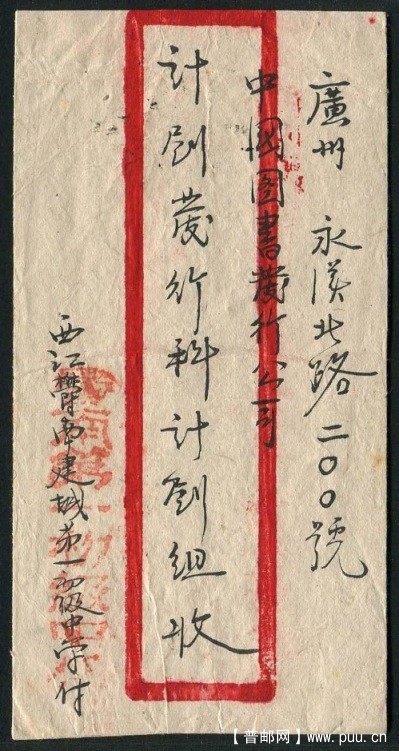 廣州 永漢北路二〇〇號
中國圖書發行公司
計劃發行科計劃組收
西江鬱南建城第一初級中學付
【普邮网】www.puu.cn